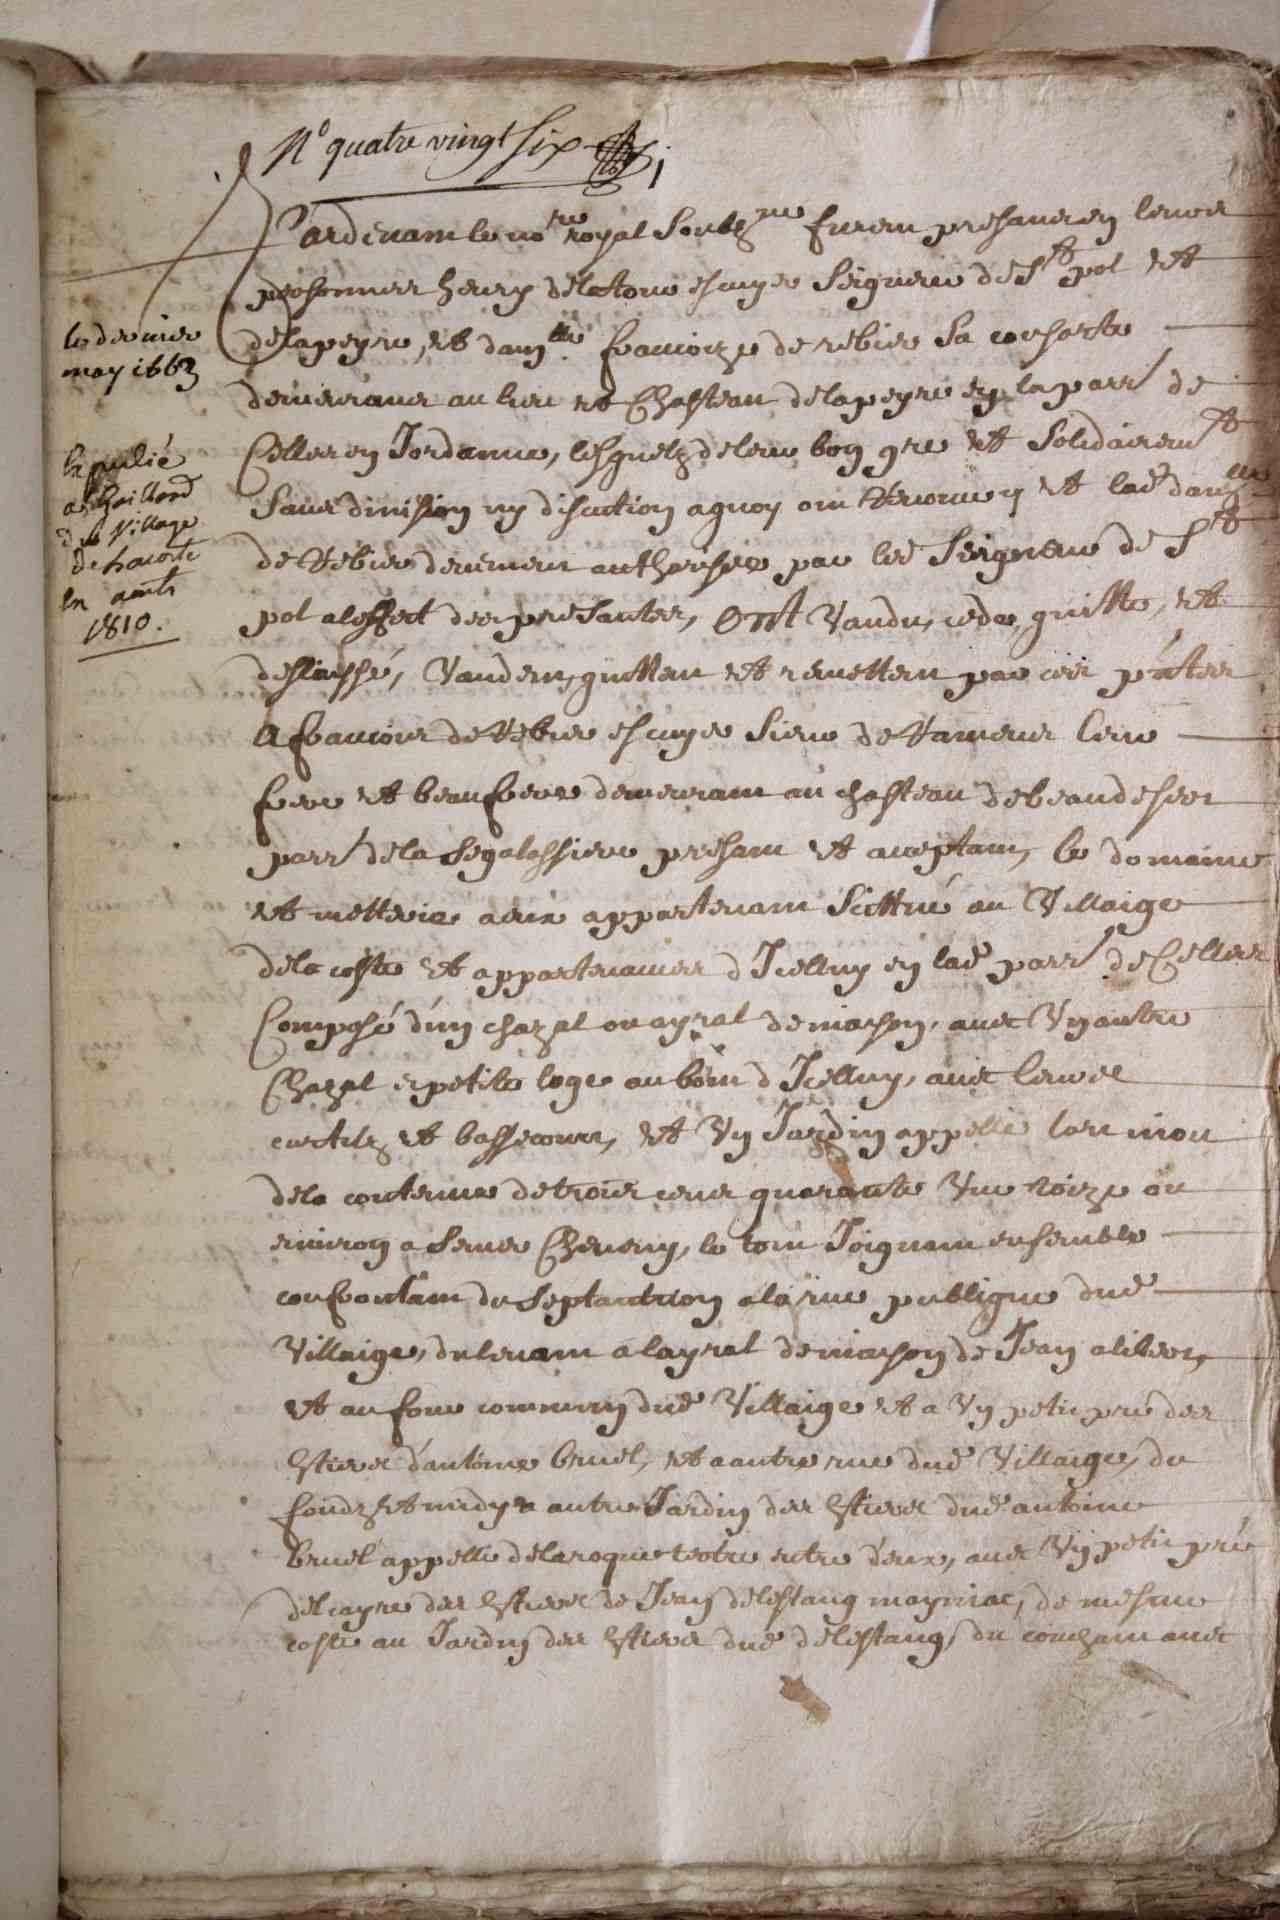 N° quatre vingt six
Pardevant le no.re royal soubz.ne furent presans en leurs
personnes henry delatour escuyer Seigneur de St pol et
delapeyre, et dam.lle francoize de rebier sa consorte
demeurans au lieu et Chasteau delapeyre en la parr. de
Celles en Jordanne, lesquelz de leur bon gre et solidairemt
sans division ny discution a quoy ont renoncé et lad. dam.lle
de Rebier deuement authorisée par led Seigneur de St
pol a leffect des presantes, Ont Vandu, cede, quitte, et
deslaissé, Vandent, quittent et remettent par ces p.ntes
A francois de Rebier escuyer sieur de leur
frere et beaufrere demeurant au chasteau de beaudesert
parr. de la Segalassiere presant et acceptant, le domaine
et metterie a eux appartenant scittué au Villaige
de la coste et appartenances d'Icelluy en lad parr. de Celles
Composé d'un chazal ou ayral de maison, avec Un autre
Chazal et petite loge au bout d'Icelluy, avec leurs
curtilz et bassecours, et Un Jardin appellé
de la contenue de trois cens quarante Une toize ou
environ a semer Cheneny, le tout Joignant ensemble
confrontant du Septantrion a la rue publique dud
Villaige, du levant a layral de maison de Jean alibert,
et au four commun dud Villaige et a Un petit pré des
hstiers d'antoine bruel, et a autre rue dud Villaige, du
fondz et midy a autre Jardin des hstiers dud antoine
bruel appellé de laroque rue entre deux, avec Un petit pré
del cayre des hstiers de Jean delestang maymac, de mesme
coste au Jardin des hstiers dud delestang, du couchant avec
le dernier
may 1663
Expedié
a Gaillard
du Village
de Lacoste
en août
1810.